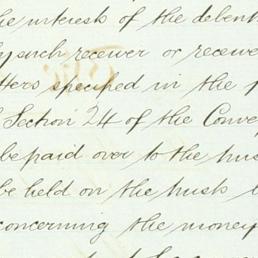 the interests of the debent
by such receiver or receive
tters specified in the p
Section 24 of the Conve
be paid over to the hus
be held on the husb
concerning the money